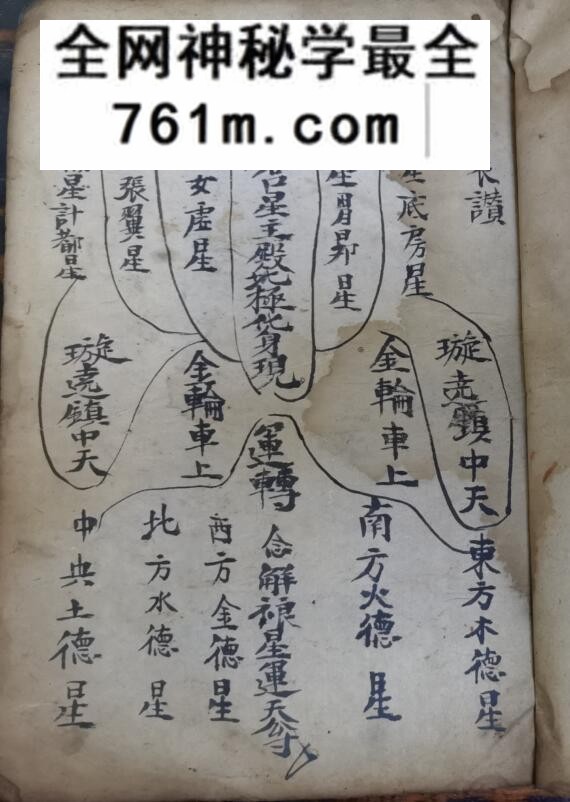 全网神秘学最全
761m.com
讃
底房星
星
星主殿
極化身現
女虚星
張翼星
星計都星
璇
鎮中天
金輪車上
運轉
金輪車上
璇
鎮中天
東方木德星
南方火德星
念解
星運天尊
西方金德星
北方水德星
中央土德星